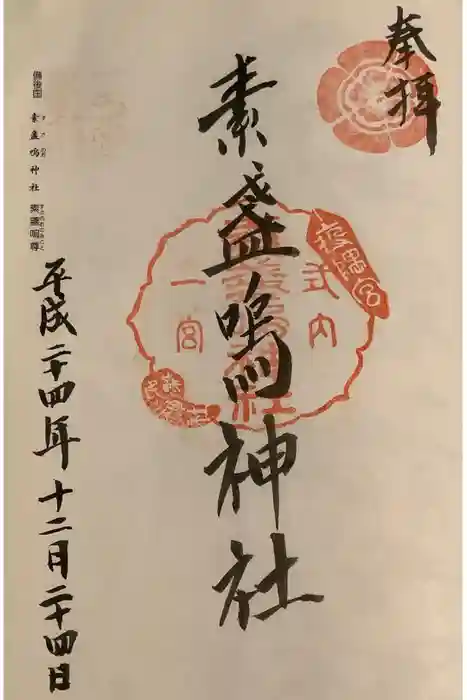 奉拝
素盞嗚神社
式内
一宮
疫隅宮
備後国 素盞嗚神社 素盞嗚尊
平成二十四年十二月二十四日